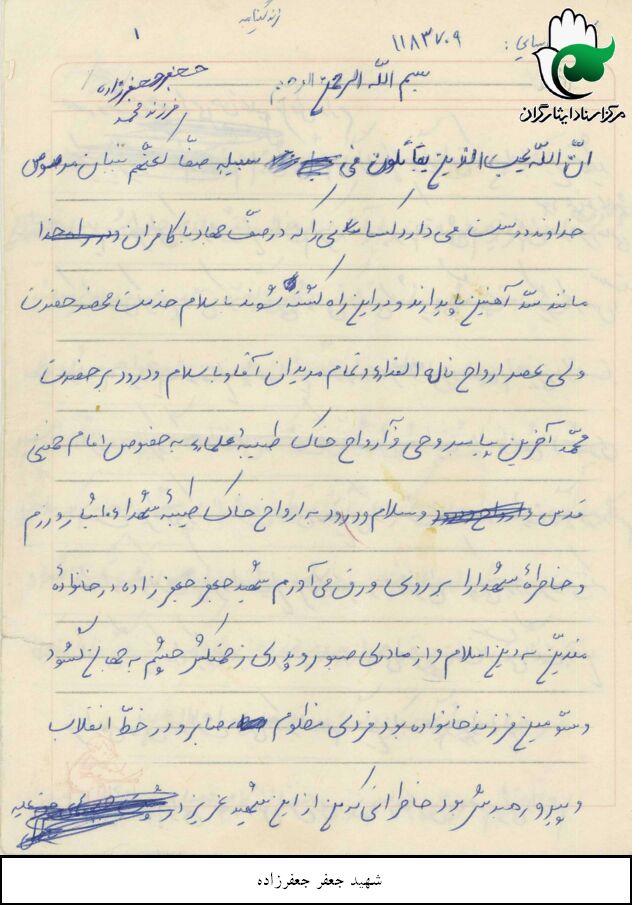 زندگینامه
۱
۱۱۸۳۷۰۹
مرکز اسناد ایثارگران
بسم الله الرحمن الرحیم
جعفر جعفرزاده
فرزند محمد
انّ اللّه یحب الذین یقاتلون فی سبیله صفّا کانّهم بنیان مرصوص
خداوند دوست می دارد کسانی را که در صف جهاد با کافران
مانند سدّ آهنین پایدارند و در این راه کشته شوند با سلام خدمت محضر حضرت
ولی عصر ارواح له الفداء و تمام مریدان آقا و با سلام و درود بر حضرت
محمّد آخرین پیامبر و ارواح خاک طیبهٔ علماء به خصوص امام خمینی
قدس و سلام و درود به ارواح خاک طیبهٔ شهداء
و خاطرهٔ شهدا را بر روی ورق می آورم شهید جعفر جعفرزاده در خانوادهٔ
متدیّن به دین اسلام و از مادری صبور و پدری زحمتکش چشم به جهان گشود
و سوّمین فرزند خانواده بود فردی مظلوم صابر و در خطّ انقلاب
و پیرو رهبرش بود خاطراتی که من از این شهید عزیز دارم
شهید جعفر جعفرزاده